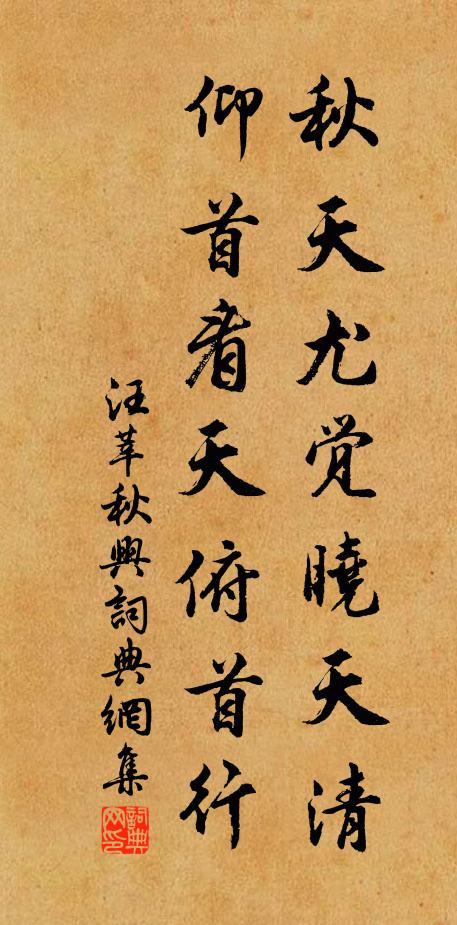 秋天尤觉曉天清
仰首看天俯首行
汪莘秋興詞典網集
詞典网印